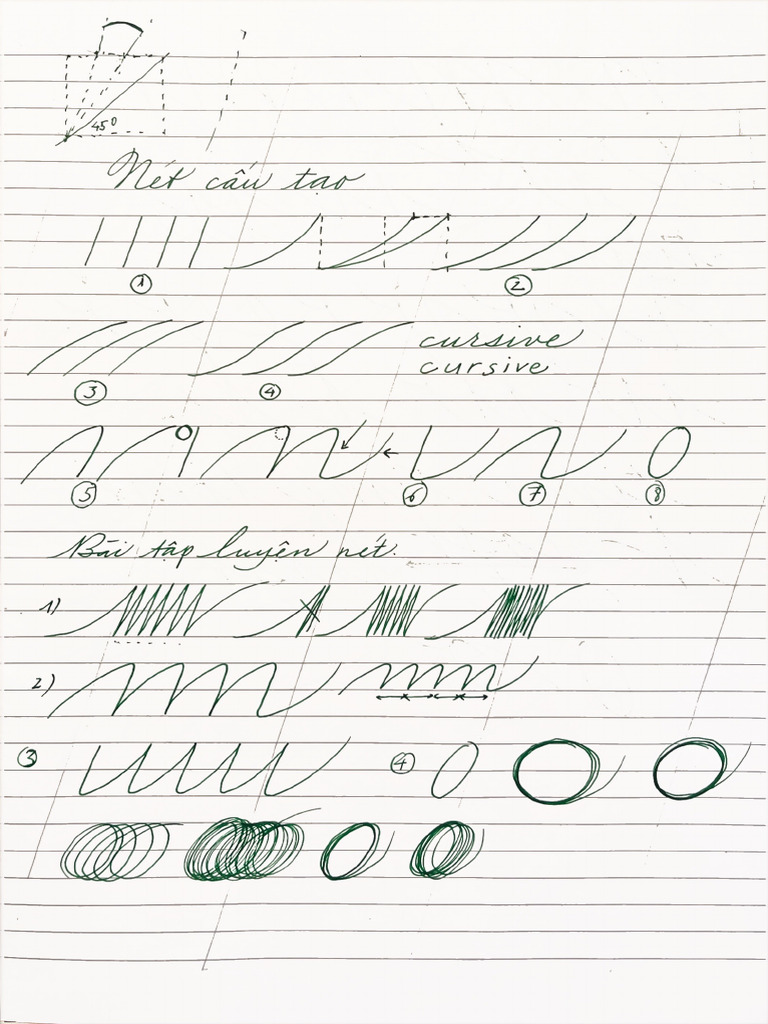 45°
Nét cấu tạo
1 2
cursive
cursive
3 4
5 6 7 8
Bài tập luyện nét.
1)
2)
3 4